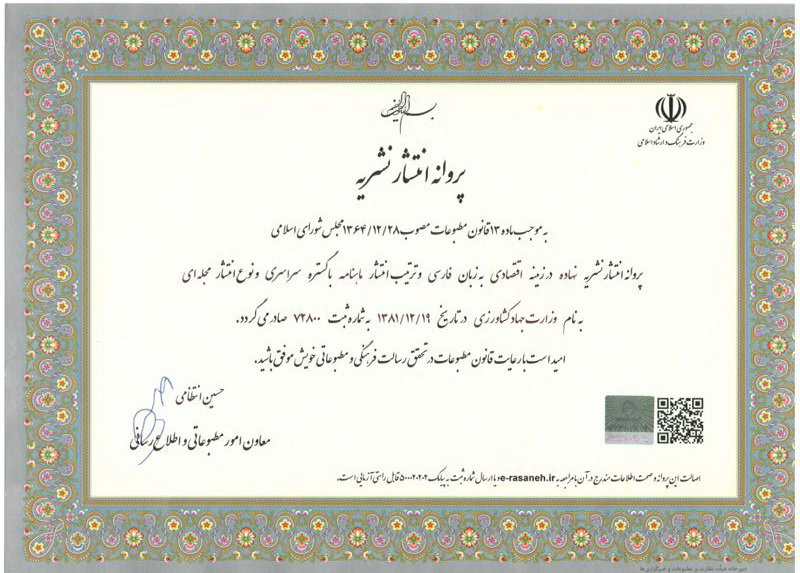 جمهوری اسلامی ایران
وزارت فرهنگ و ارشاد اسلامی
پروانه انتشار نشریه
به موجب ماده ۱۳ قانون مطبوعات مصوب ۱۳۶۴/۱۲/۲۸ مجلس شورای اسلامی
پروانه انتشار نشریه نهاده در زمینه اقتصادی به زبان فارسی و ترتیب انتشار ماهنامه با گستره سراسری و نوع انتشار مجله ای
به نام وزارت جهاد کشاورزی در تاریخ ۱۳۸۱/۱۲/۱۹ به شماره ثبت ۷۲۸۰۰ صادر می گردد.
امید است با رعایت قانون مطبوعات در تحقق رسالت فرهنگی و مطبوعاتی خویش موفق باشید.
حسین انتظامی
معاون امور مطبوعاتی و اطلاع رسانی
اصالت این پروانه و صحت اطلاعات مندرج در آن با مراجعه به e-rasaneh.ir و یا ارسال شماره ثبت به پیامک ۵۰۰۰۲۰۲۰۲ قابل راستی آزمایی است.
دبیرخانه هیأت نظارت بر مطبوعات و خبرگزاری‌ها